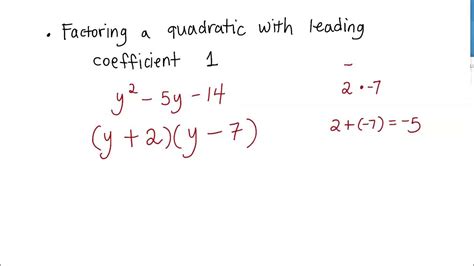 • Factoring a quadratic with leading
coefficient 1
y² - 5y - 14
(y + 2)(y - 7)
-
2 · -7
2 + (-7) = -5